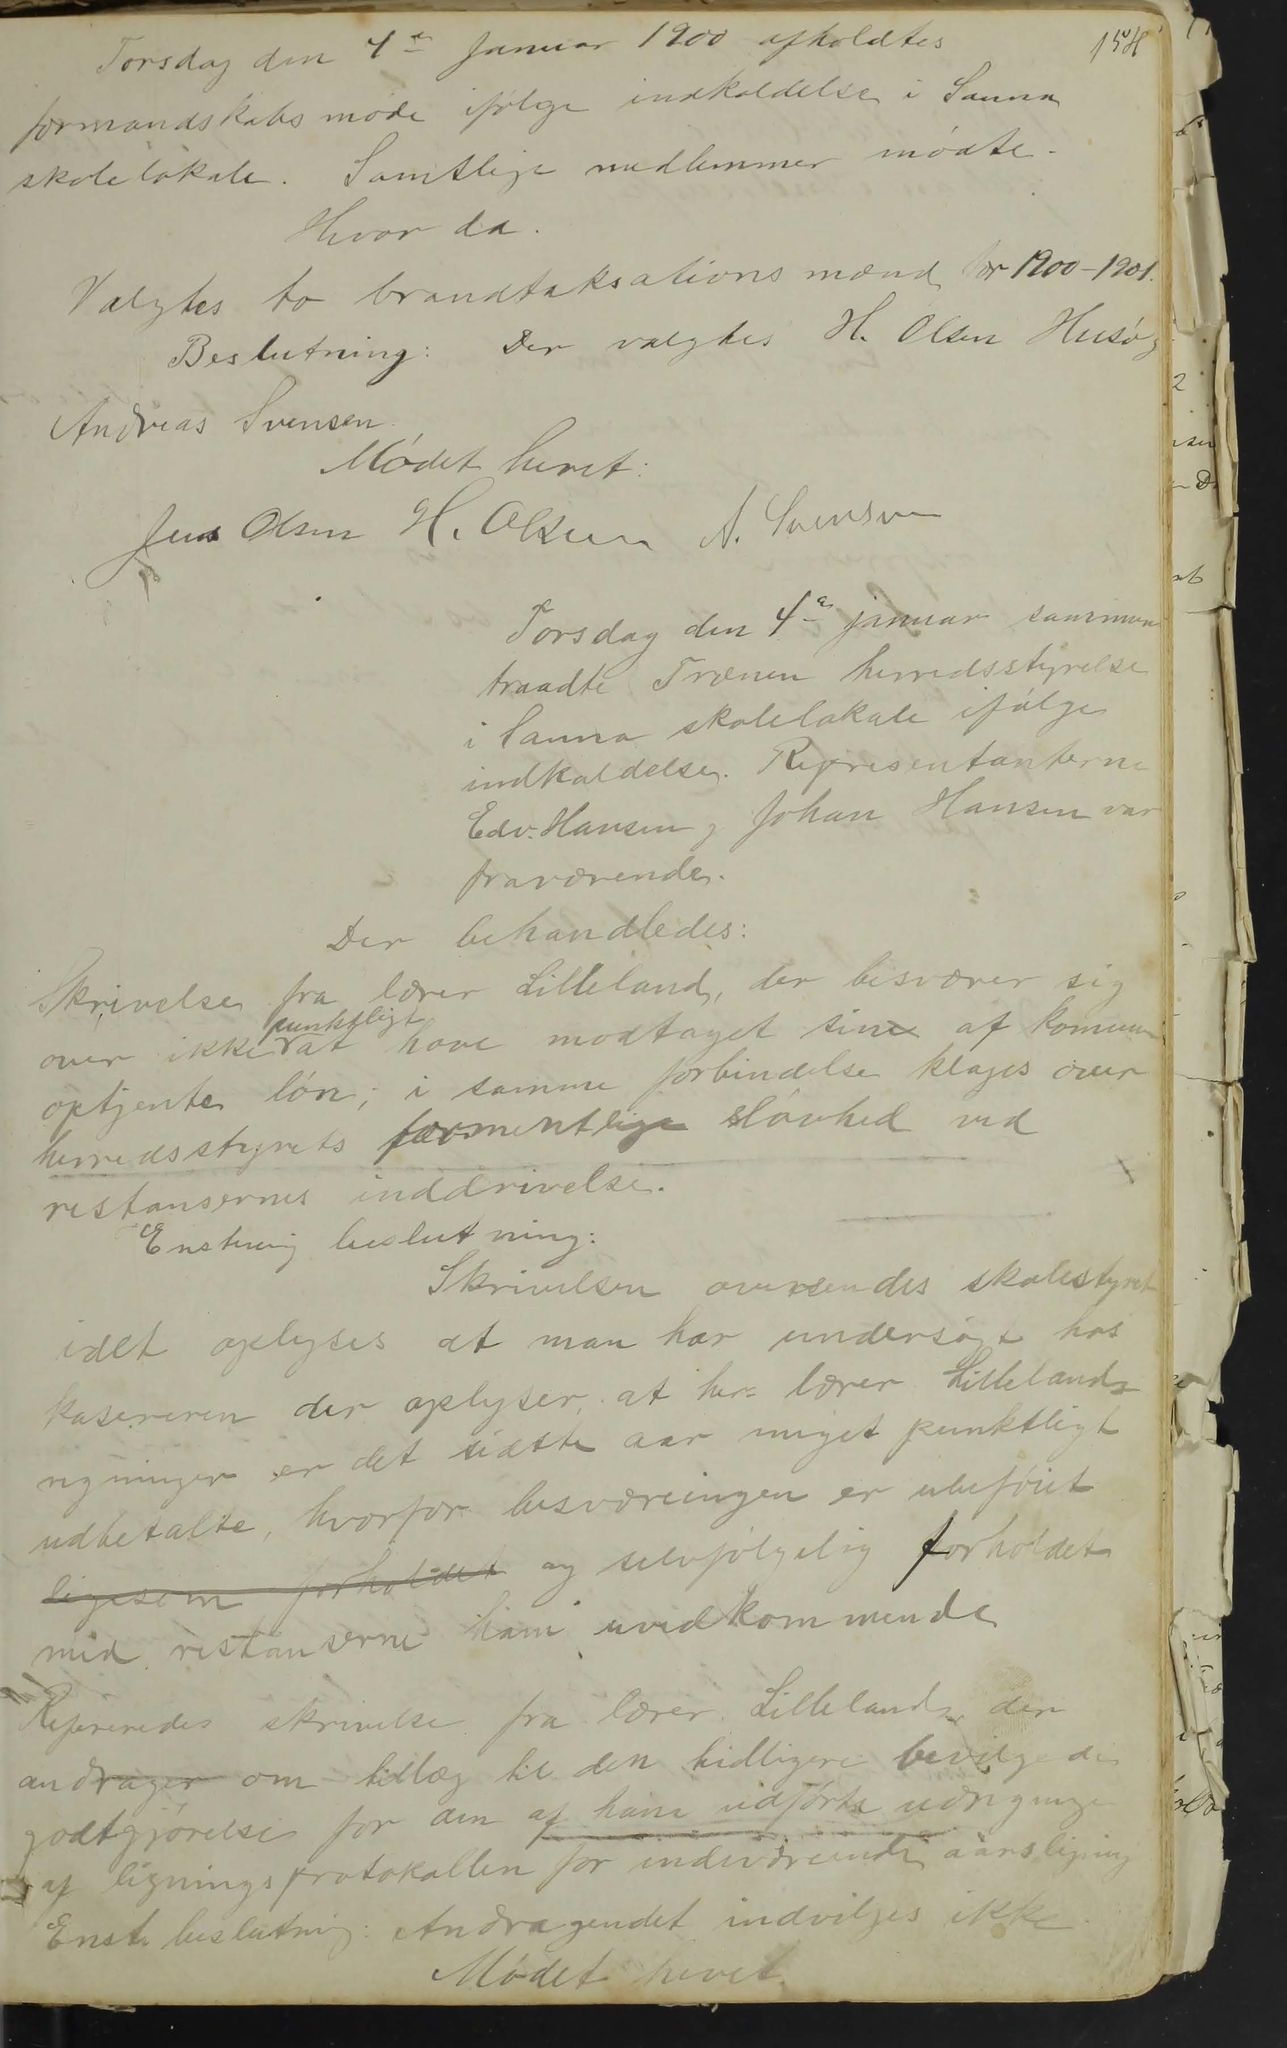 154
Torsdag den 4de Januar 1900 afholdtes
formandskabsmøde ifølge indkaldelse i Sanna
skolelokale. Samtlige medlemmer mødte.
Hvor da.
Valgtes to brandtaksationsmænd for 1900-1901.
Beslutning: Der valgtes H. Olsen Husø og
Andreas Svensen.
Mødet hevet:
Jens Olsen H. Olsen A. Svensen
Torsdag den 4de januar sammen
traadte Trænen herredsstyrelse
i Sanna skolelokale ifølge
indkaldelse. Repræsentanterne
Edv. Hansen og Johan Hansen var
fraværende.
Der behandledes:
Skrivelse fra lærer Lilleland, der besværer sig
punktligt
over ikke at have modtaget sin af komunen
optjente løn; i samme forbindelse klages over
herredsstyrets formentlige sløvhed ved
restansernes inddrivelse.
Enstemig beslutning:
Skrivelsen oversendes skolestyret
idet oplyses at man har undersøgt hos
kasereren der oplyser, at hr. lærer Lillelands
regninger er det sidste aar meget punktligt
udbetalte, hvorfor besværingen er ubeføiet
ligesom forholdet og selvfølgelig forholdet
med restanserne ham uvedkommende
Refereredes skrivelse fra lærer Lilleland, der
andrager om tillæg til den tidligere bevilgede
godtgjørelse for den af ham udførte
af ligningsprotokollen for indeværende aarsligning
Enst. beslutning: Andragendet indvilges ikke.
Mødet hevet.